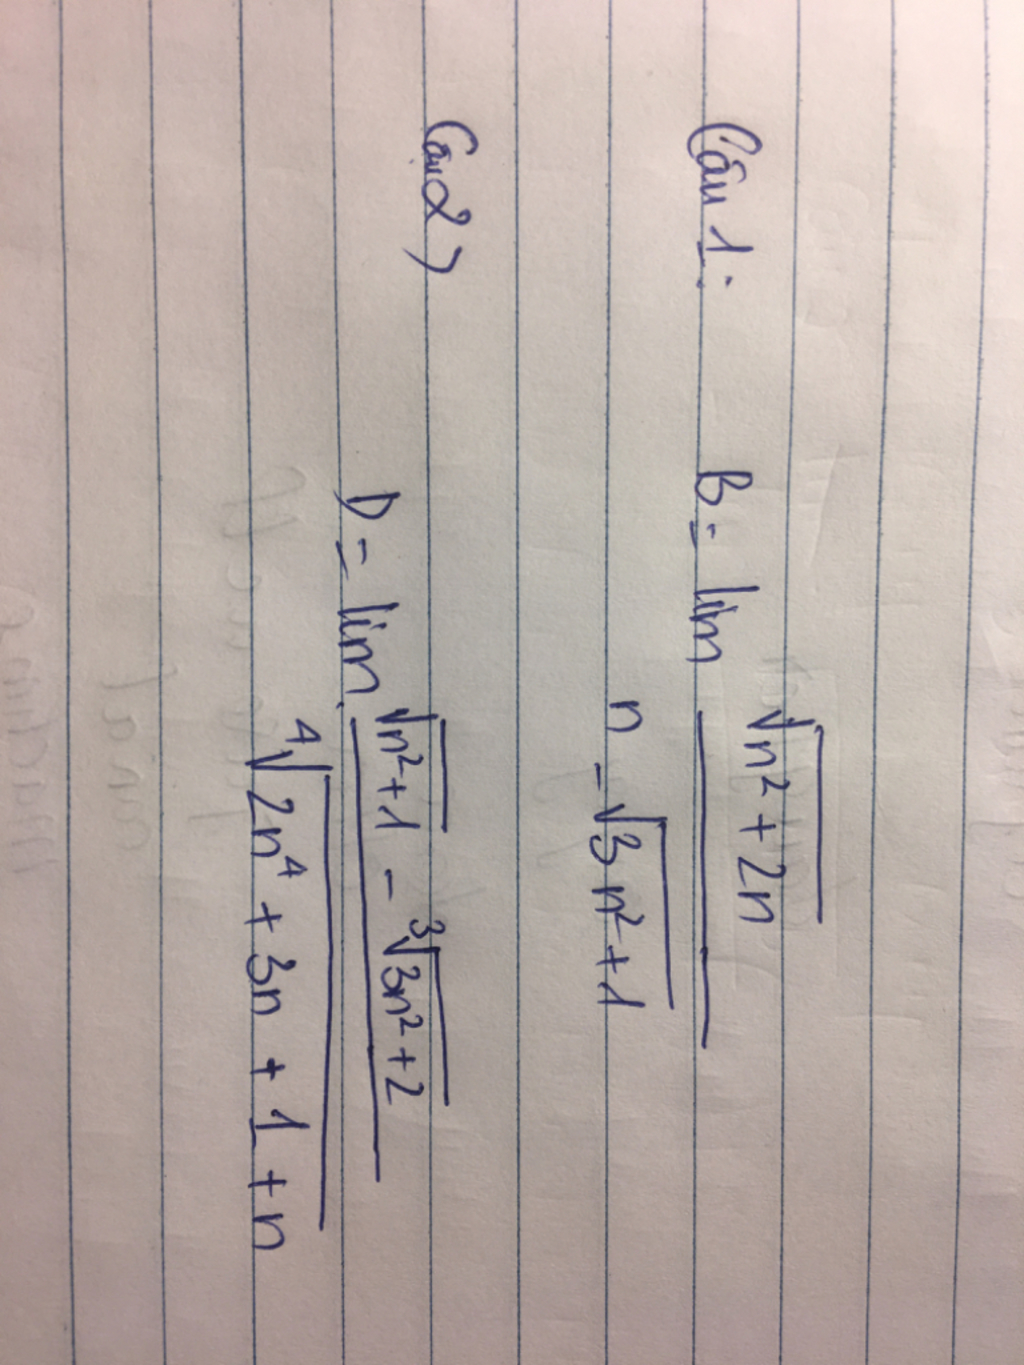 Câu 1: B = lim √(n² + 2n) / (n - √(3n² + 1))
Câu 2) D = lim (√(n² + 1) - ³√(3n² + 2)) / (⁴√(2n⁴ + 3n + 1 + n))